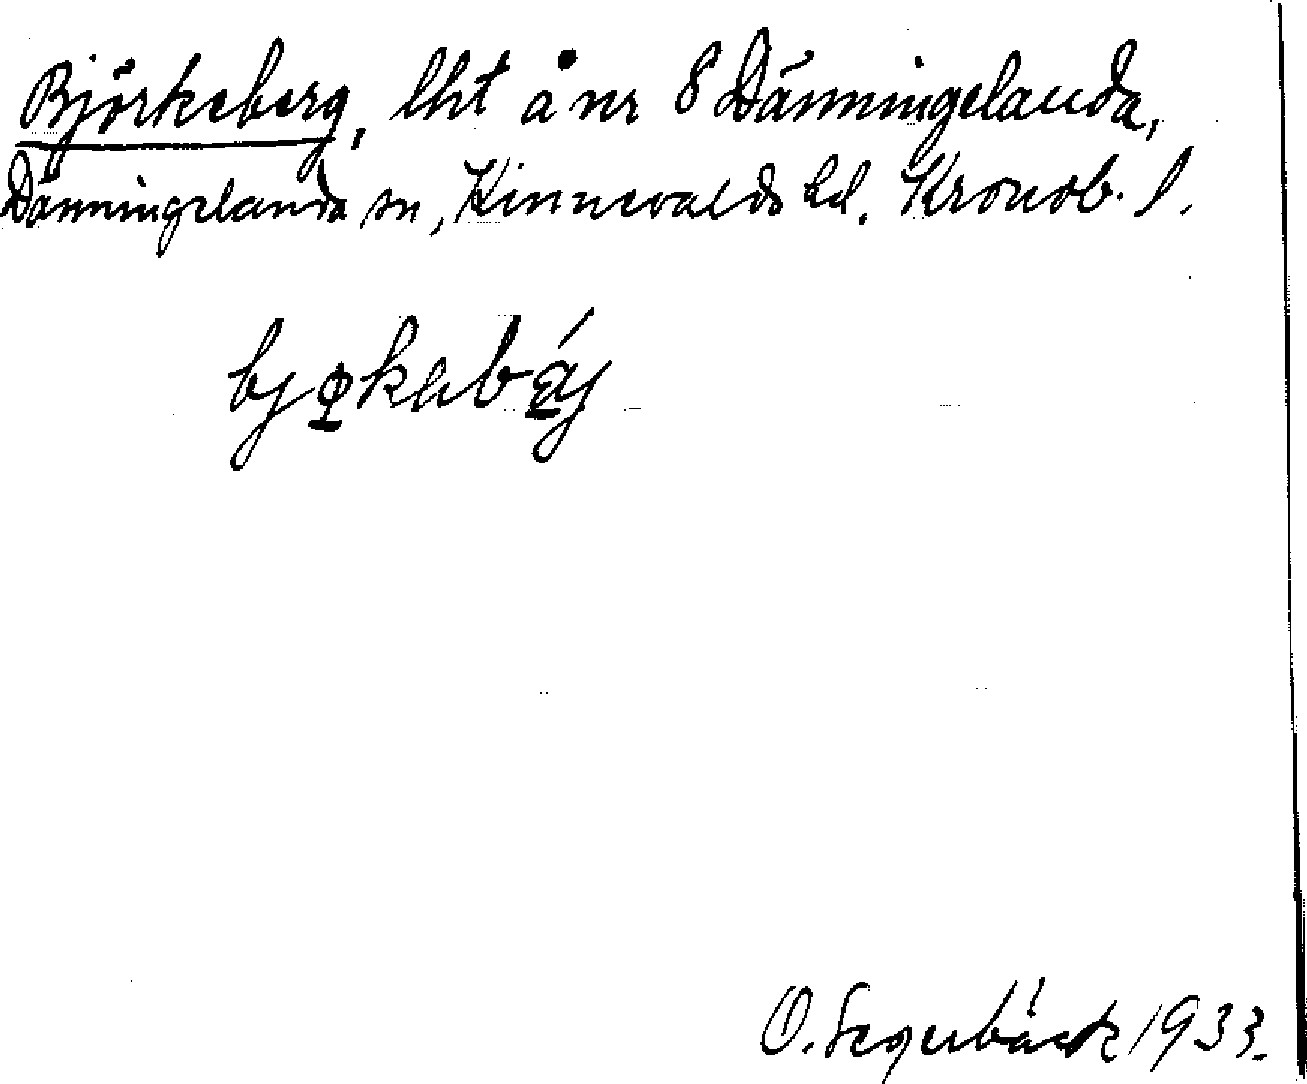 Björkeberg, lht å nr 8 Dänningelanda,
Dänningelanda sn, Kinnevalds hd. Kronob. l.
O. Segerbäck 1933.